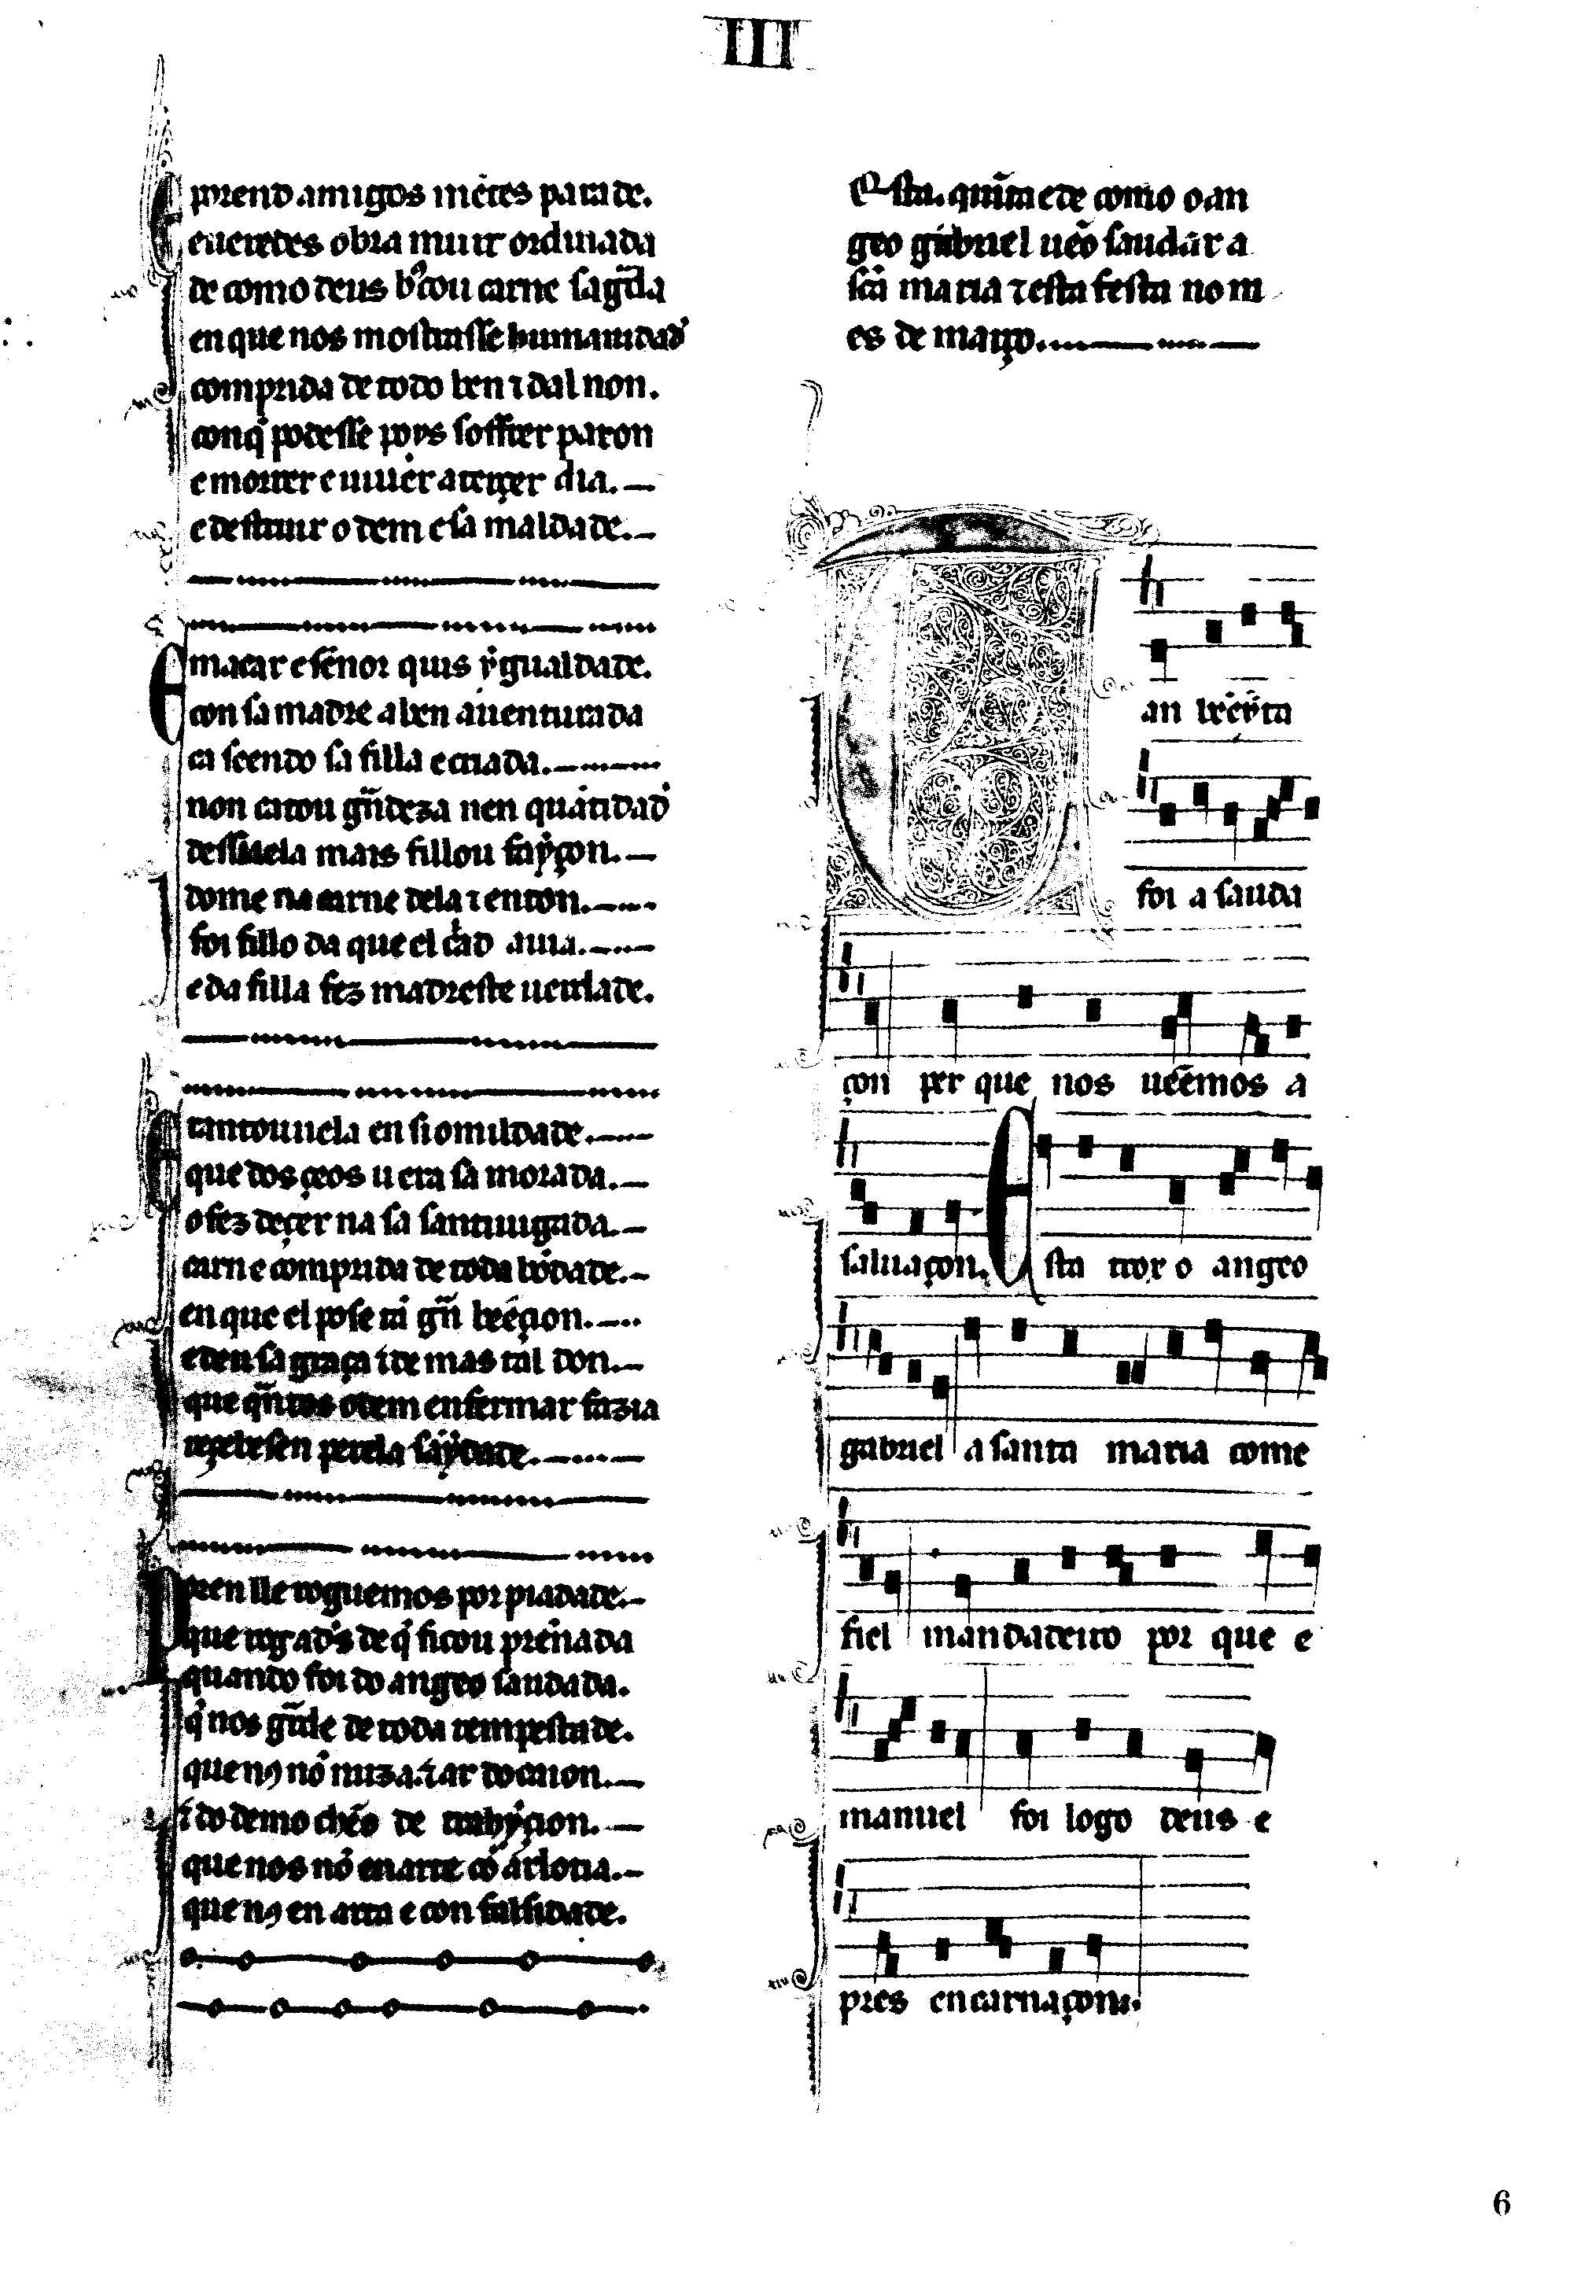 III
E prend amigos mẽtes parade.
e ueredes obra muit ordinada
de como deus b᷒cou carne sagr̃da
en que nos mostrasse humanidad̾
comprida de todo ben ⁊ dal non.
con q̾ podesse poys soffrer paxon
e morrer e uiuer a terçer dia.
e destruir o dem e sa maldade.
E macar e sẽnor quis ẏ gualdade.
con sa madre a ben auenturada
ca seendo sa filla e criada.
non catou gr̃ndeza nen quãtidad̾
dessuela mais fillou faẏçon.
dome na carne dela ⁊ enton.
foi fillo da que el criad auia.
e da filla fez madreste uerdade.
E tantouuela en si omildade.
que dos çeos u era sa morada.
o fez deçer na sa santiuigada.
carne comprida de toda bõdade.
en que el pose tã gr̃n bẽeçion.
e deu sa graça ⁊ de mas tal don.
que qr̃ntos o dem enfermar fazia
reçebesen perela sãẏdade.
P oren lle roguemos por piadade.
que rog a ds̃ de q̾ ficou prennada
quando foi do angeo saudada.
q̾ nos gr̃de de toda tempestade.
que nꝯ nõ nuza. ⁊ ar do cuion.
⁊ do demo chẽo de traẏçion.
que nos nõ enarte cõ arlotia.
que nꝯ en arta e con falsidade.
Esta. quĩta e de como o an
geo gabriel uẽo saudar a
scã maria ⁊ esta festa no m
es de março.
T an bẽeyta
foi a sauda
çon per que nos uẽemos a
saluaçon. Esta trox o angeo
gabriel a santa maria come
fiel mandadeiro por que e
manuel foi logo deus e
pres encarnaçon.
6